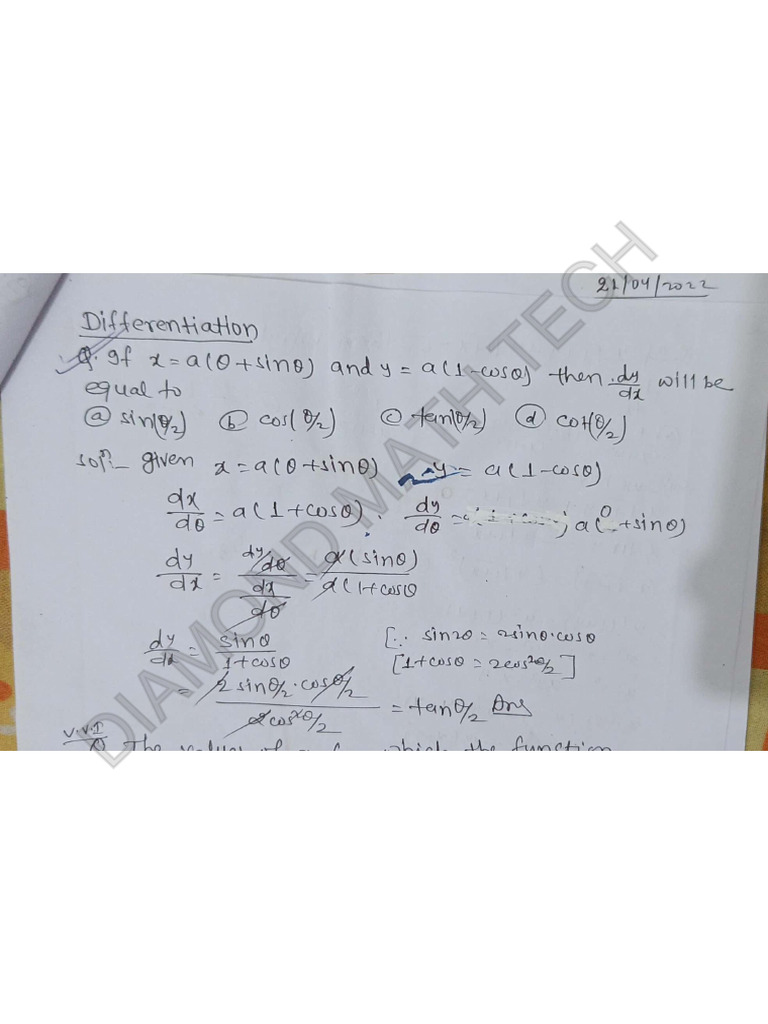 21/04/2022
Differentiation
Q. If x = a(θ + sinθ) and y = a(1 - cosθ) then dy/dx will be
equal to
(a) sin(θ/2) (b) cos(θ/2) (c) tan(θ/2) (d) cot(θ/2)
solⁿ:- given x = a(θ + sinθ) y = a(1 - cosθ)
dx/dθ = a(1 + cosθ) . dy/dθ = a(0 + sinθ)
dy/dx = (dy/dθ)/(dx/dθ) = a(sinθ)/a(1 + cosθ
dy/dx = sinθ/1 + cosθ [∵ sin2θ = 2sinθ·cosθ
[1 + cosθ = 2cos²θ/2]
= 2 sinθ/2 · cosθ/2 / 2cos²θ/2 = tanθ/2 Ans
V.V.I
Q The values of which the function
DIAMOND MATH TECH